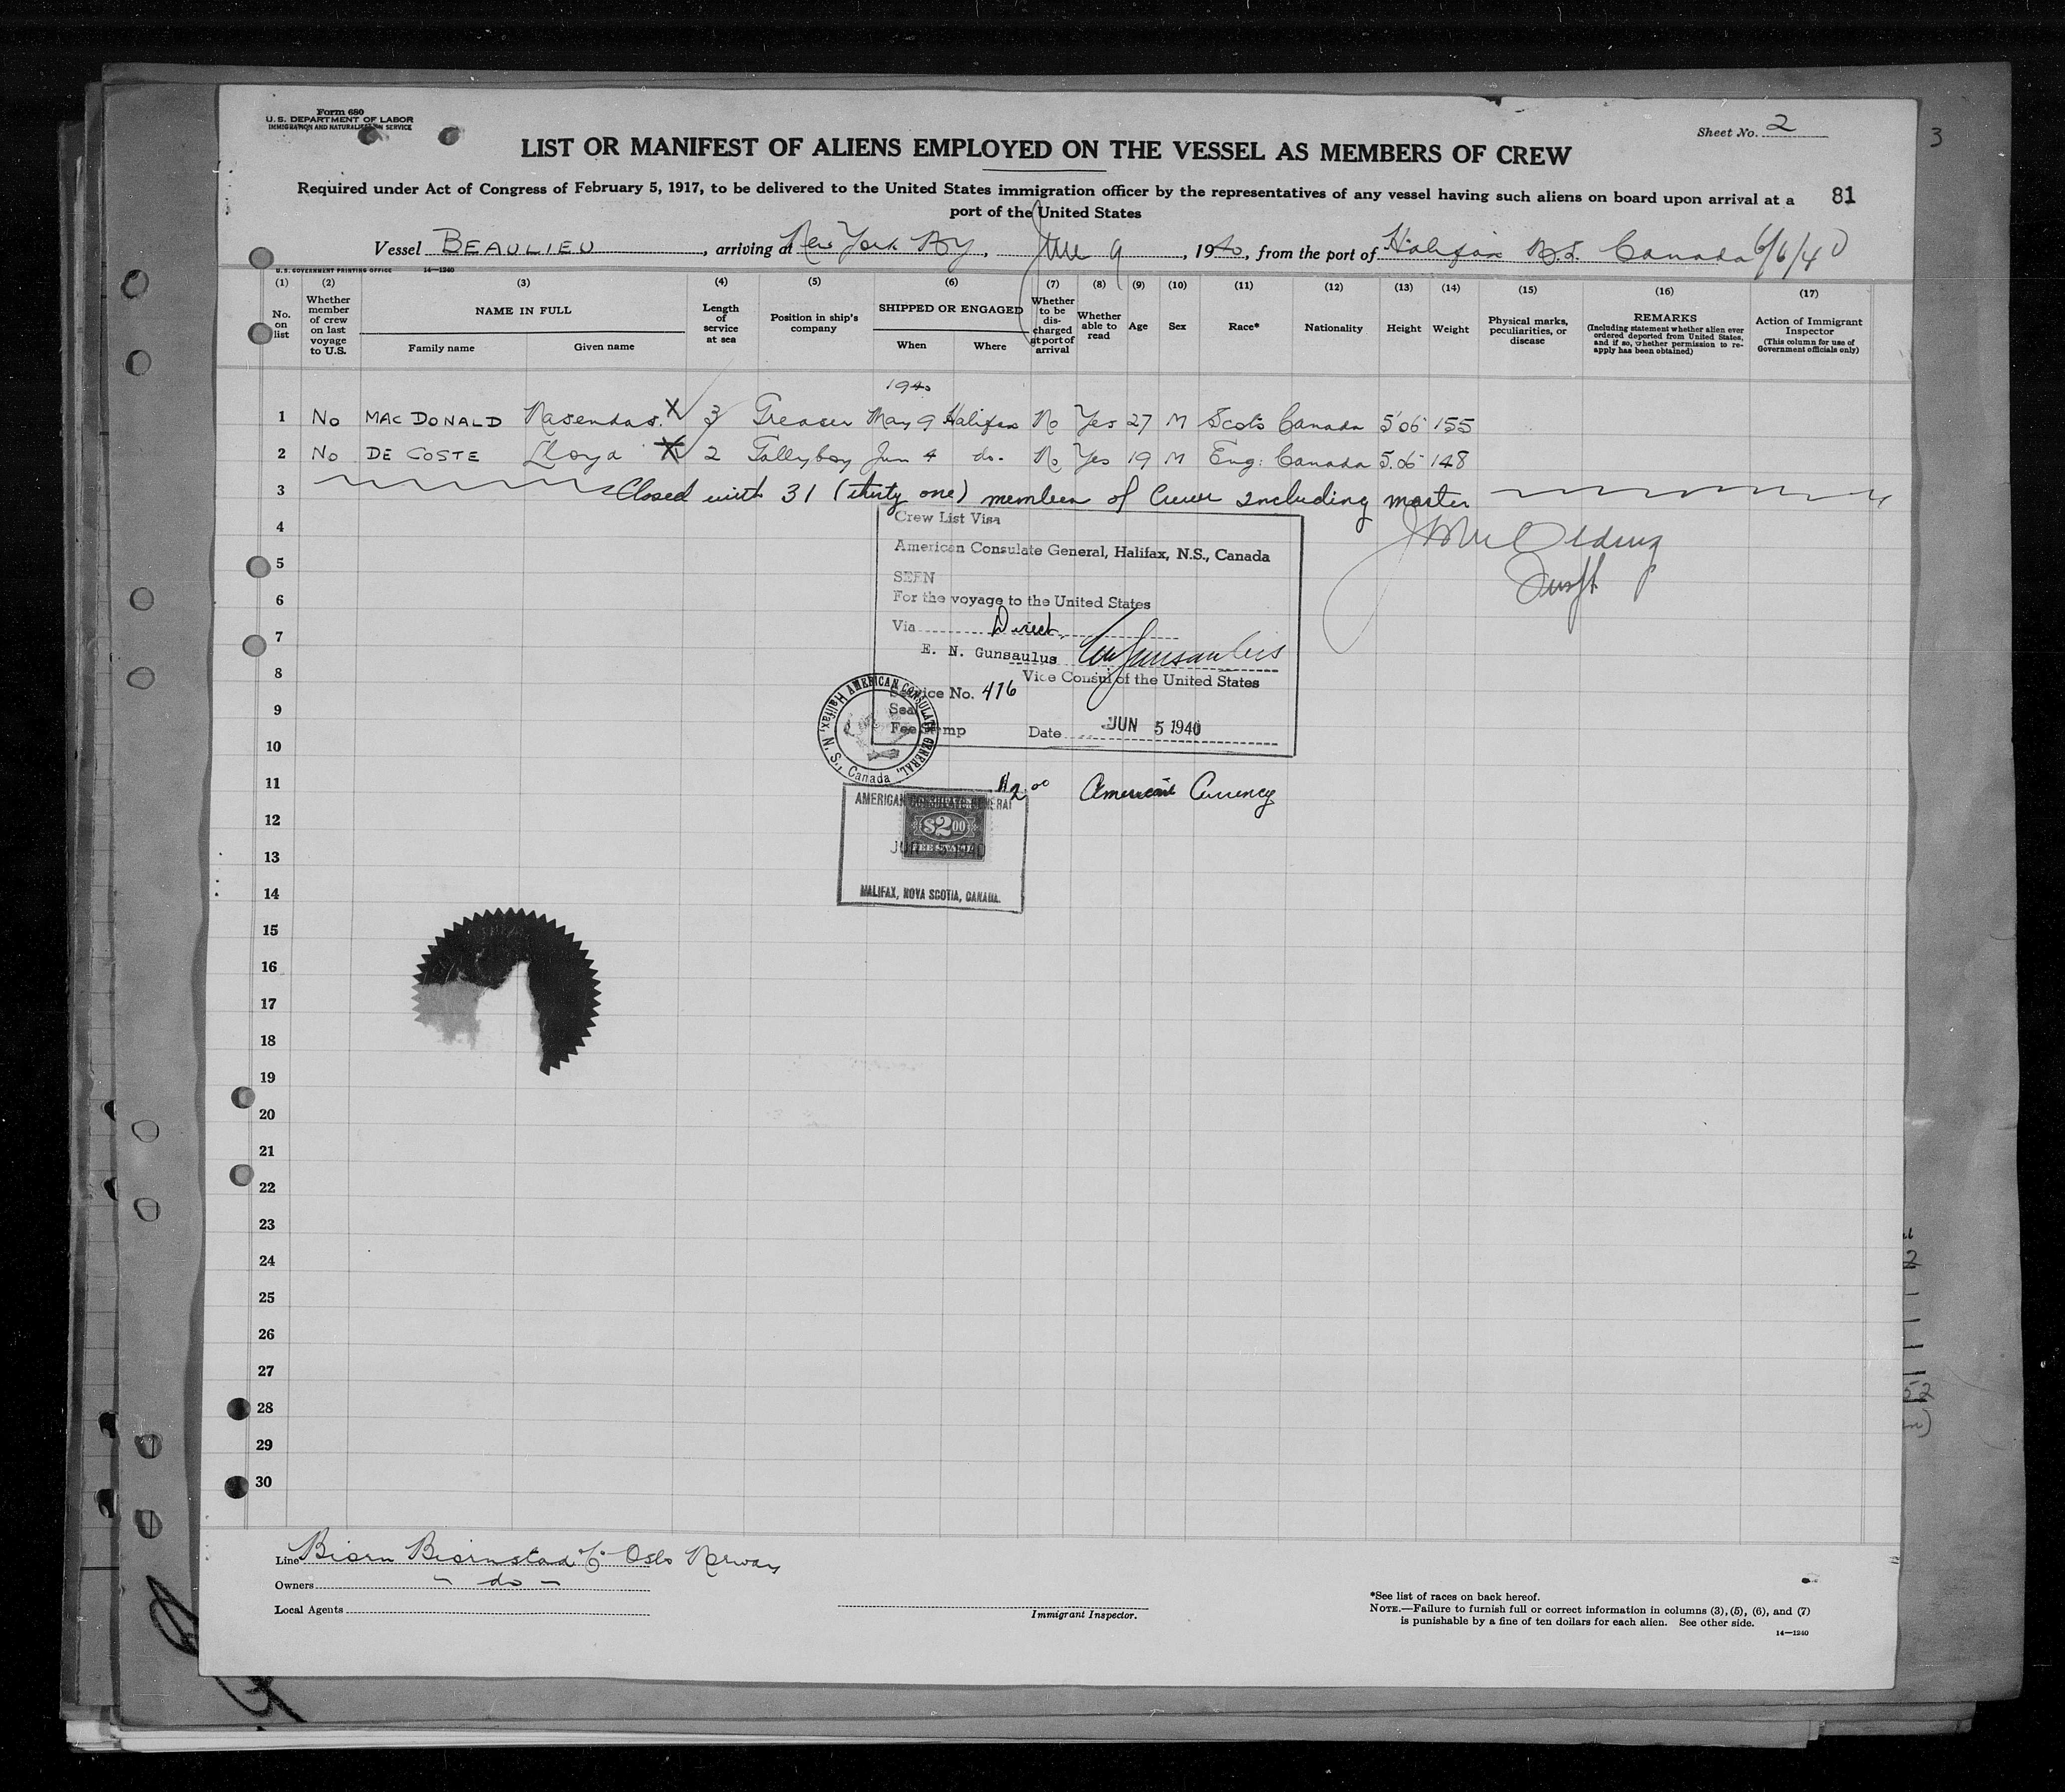 Form 680
U. S. DEPARTMENT OF LABOR
IMMIGRATION AND NATURALIZATION SERVICE
Sheet No. 2
3
LIST OR MANIFEST OF ALIENS EMPLOYED ON THE VESSEL AS MEMBERS OF CREW
Required under Act of Congress of February 5, 1917, to be delivered to the United States immigration officer by the representatives of any vessel having such aliens on board upon arrival at a
port of the United States
81
Vessel BEAULIEU, arriving at New York NY, June 9, 1940, from the port of Halifax N.S. Canada 6/6/40
U. S. GOVERNMENT PRINTING OFFICE 14—1240
(1) (2) (3) (4) (5) (6) (7) (8) (9) (10) (11) (12) (13) (14) (15) (16) (17)
No. on list
Whether member of crew on last voyage to U.S.
NAME IN FULL
Family name
Given name
Length of service at sea
Position in ship's company
SHIPPED OR ENGAGED
When
Where
Whether to be discharged at port of arrival
Whether able to read
Age
Sex
Race*
Nationality
Height
Weight
Physical marks, peculiarities, or disease
REMARKS
(Including statement whether alien ever ordered deported from United States, and if so, whether permission to reapply has been obtained)
Action of Immigrant Inspector
(This column for use of Government officials only)
1940
1 No MACDONALD X 3 Greaser May 9 Halifax No Yes 27 M Scots Canada 5'06 155
2 No DE COSTE Lloyd X 2 Tallyboy Jun 4 do. No Yes 19 M Eng: Canada 5.06 148
3 Closed with 31 (thirty one) members of Crew including master
4
5
6
7
8
9
10
11
12
13
14
15
16
17
18
19
20
21
22
23
24
25
26
27
28
29
30
Crew List Visa
American Consulate General, Halifax, N.S., Canada
SEEN
For the voyage to the United States
Via Direct
E. N. Gunsaulus EN Gunsaulus
Vice Consul of the United States
Service No. 416
Seal
Fee Stamp
Date JUN 5 1940
AMERICAN CONSULATE GENERAL, Halifax, N. S., Canada
$2.00 American Currency
AMERICAN CONSULATE GENERAL
$2.00
FEE STAMP
JUN 5 1940
HALIFAX, NOVA SCOTIA, CANADA.
Line Biorn Biornstad & Co Oslo Norway
Owners - do -
Local Agents
Immigrant Inspector.
*See list of races on back hereof.
NOTE.—Failure to furnish full or correct information in columns (3), (5), (6), and (7)
is punishable by a fine of ten dollars for each alien. See other side.
14—1240